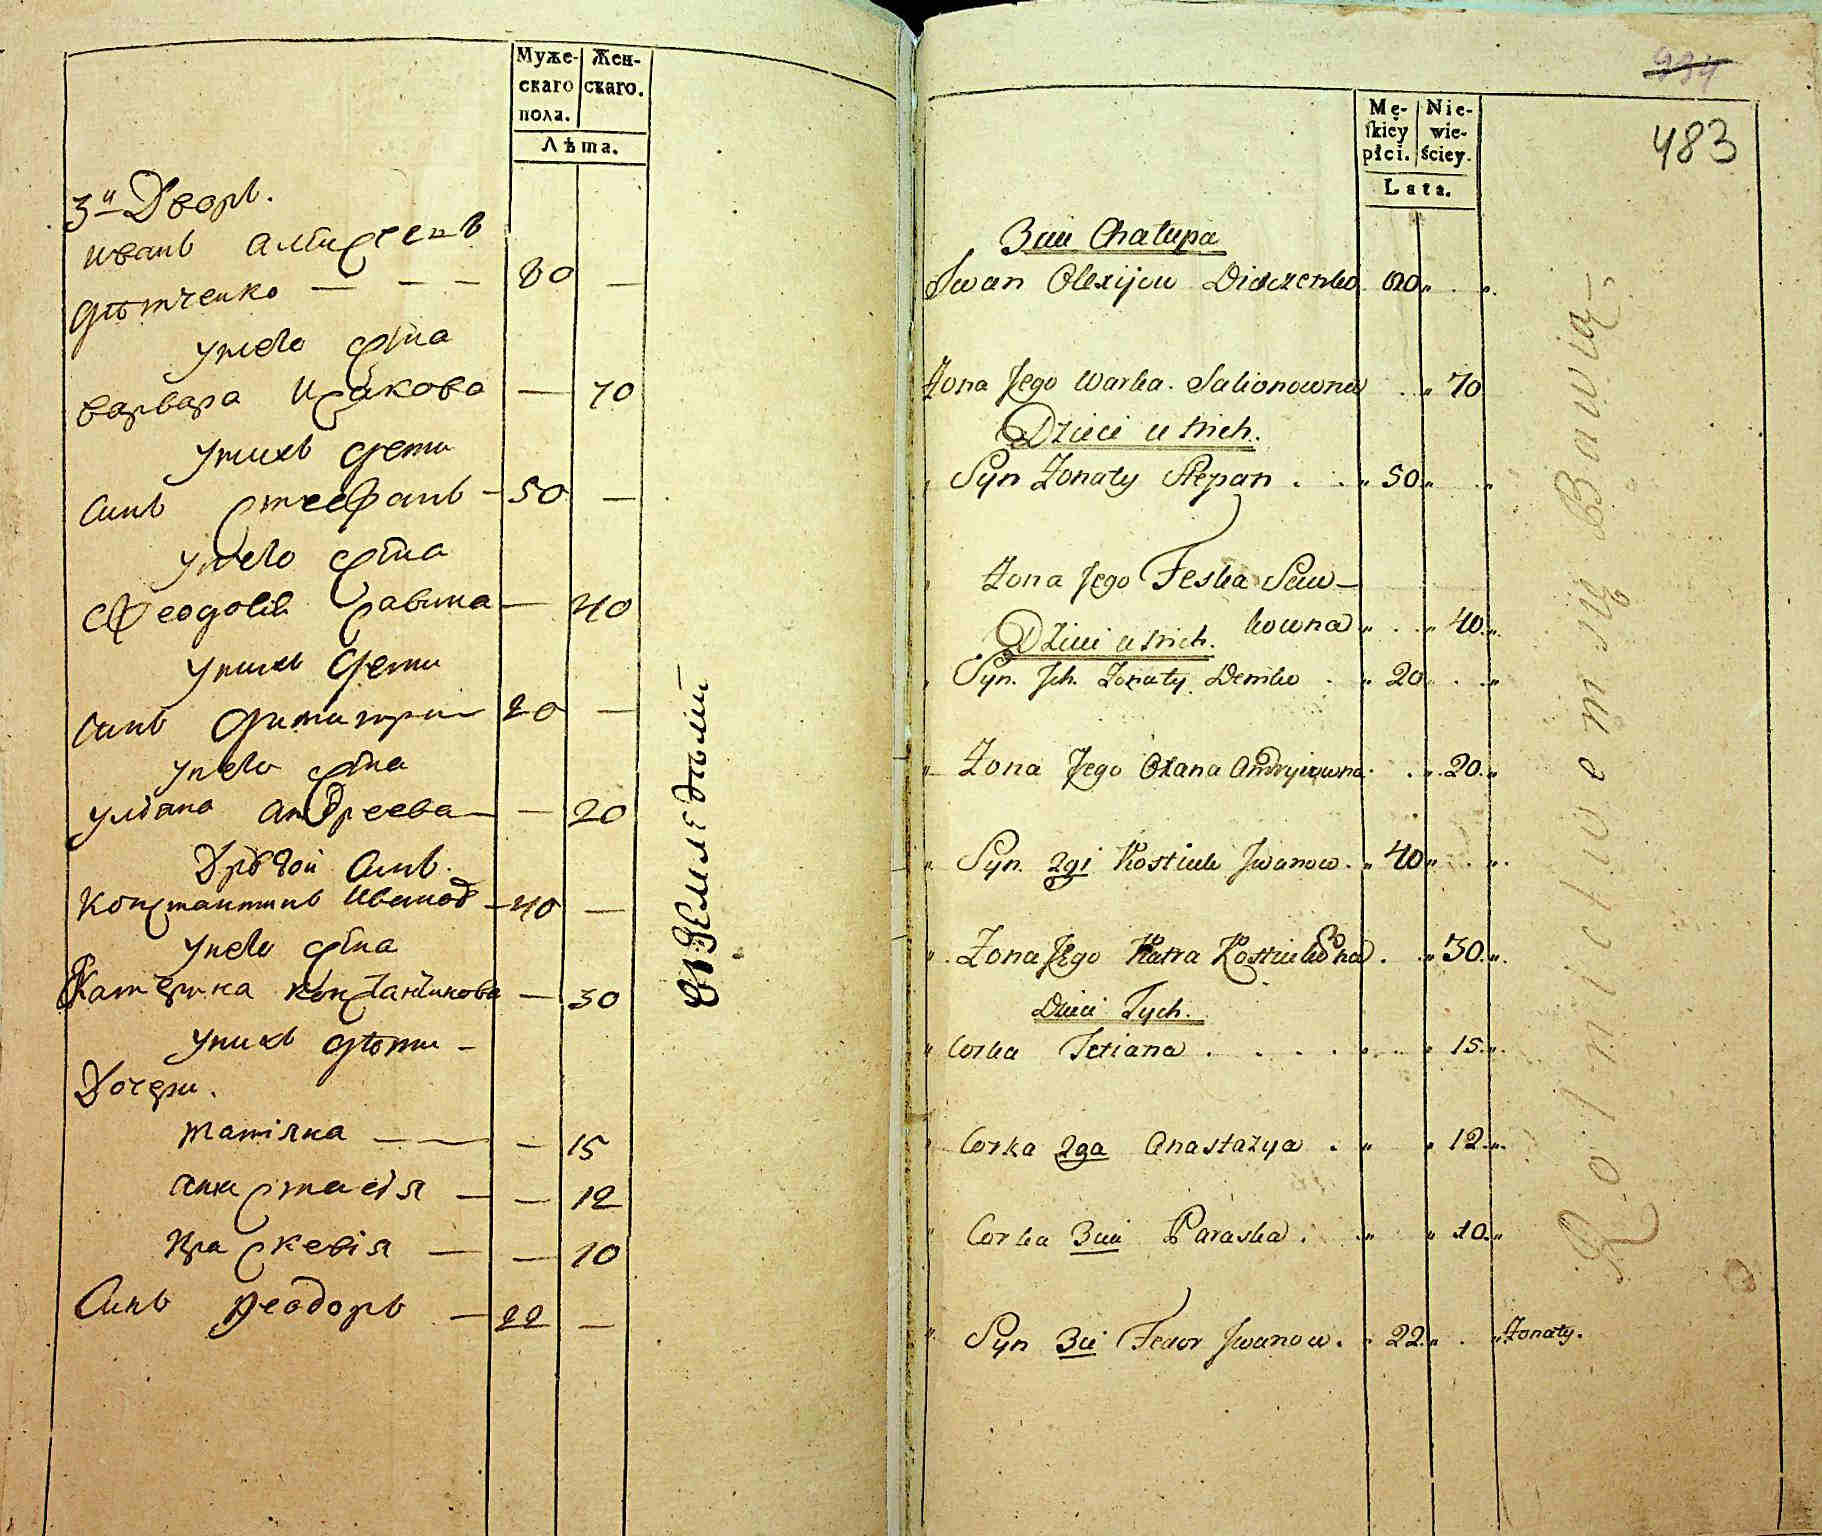 Муже-
скаго
пола.
Жен-
скаго.
Лѣта.
3й Дворъ.
Иванъ Алексеевъ
Дѣтченко — — — 80 —
У него жена
Варвара Исакова — 70
У нихъ дети
Синъ Стефанъ — 50 —
У него жена
Феодосия Савина — 40
У нихъ дети
Синъ Димитрий 20 —
У него жена
Улияна Андреева — — 20
Другой Синъ
Константинъ Иванов — 40 —
У него жена
Катерина Константинова — 30
У нихъ дѣти —
Дочери.
Татіяна — — — 15
Анастасія — — 12
Праскевія — — 10
Синъ Феодоръ — 22 —
въ земледѣлии
934
483
Mę-
skiey
płci.
Nie-
wie-
ściey.
Lata.
3cia Chałupa
Iwan Olexijow Didczenko 80 „ . „
Żona Jego Warka . „ 70
Dzieci u Nich.
Syn Żonaty Stepan . . „ 50 „ „
Żona Jego Feska Saw-
kowna „ . . „ 40 „
Dzieci u Nich.
Syn. Ich. Żonaty Demko . „ 20 . . „
„ Żona Jego Oxana Andryiowna . . „ 20 „
„ Syn. 2gi Kostiuk Iwanow . „ 40 „ . „
„ Żona Jego Katra Kostiukowna . „ 30 „
Dzieci Tych.
„ Corka Tetiana . . . . „ . . „ 15 „
„ Corka 2ga Anastazya . „ „ 12 „
„ Corka 3cia Paraska . . „ „ 10 „
„ Syn 3ci Fedor Iwanow . „ 22 „ . „ Żonaty.
Rolnictwem się Bawią